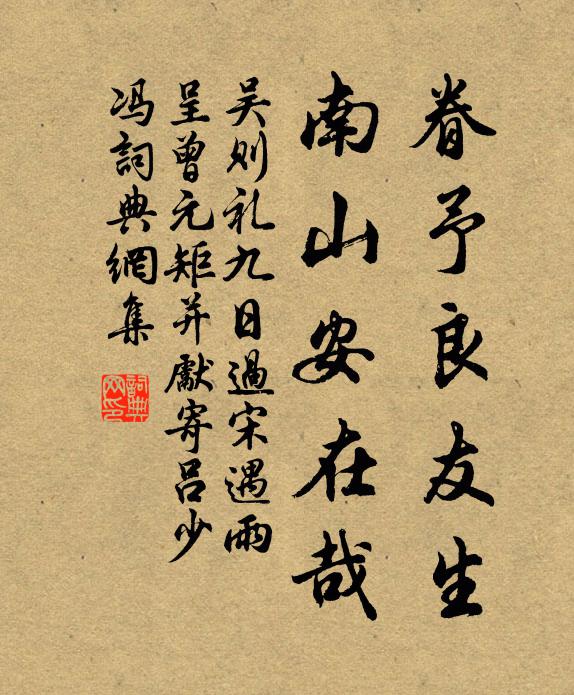 眷予良友生
南山安在哉
吴则礼九日過宋遇雨
呈曾元矩并獻寄呂少
冯詞典網集
詞典
网印